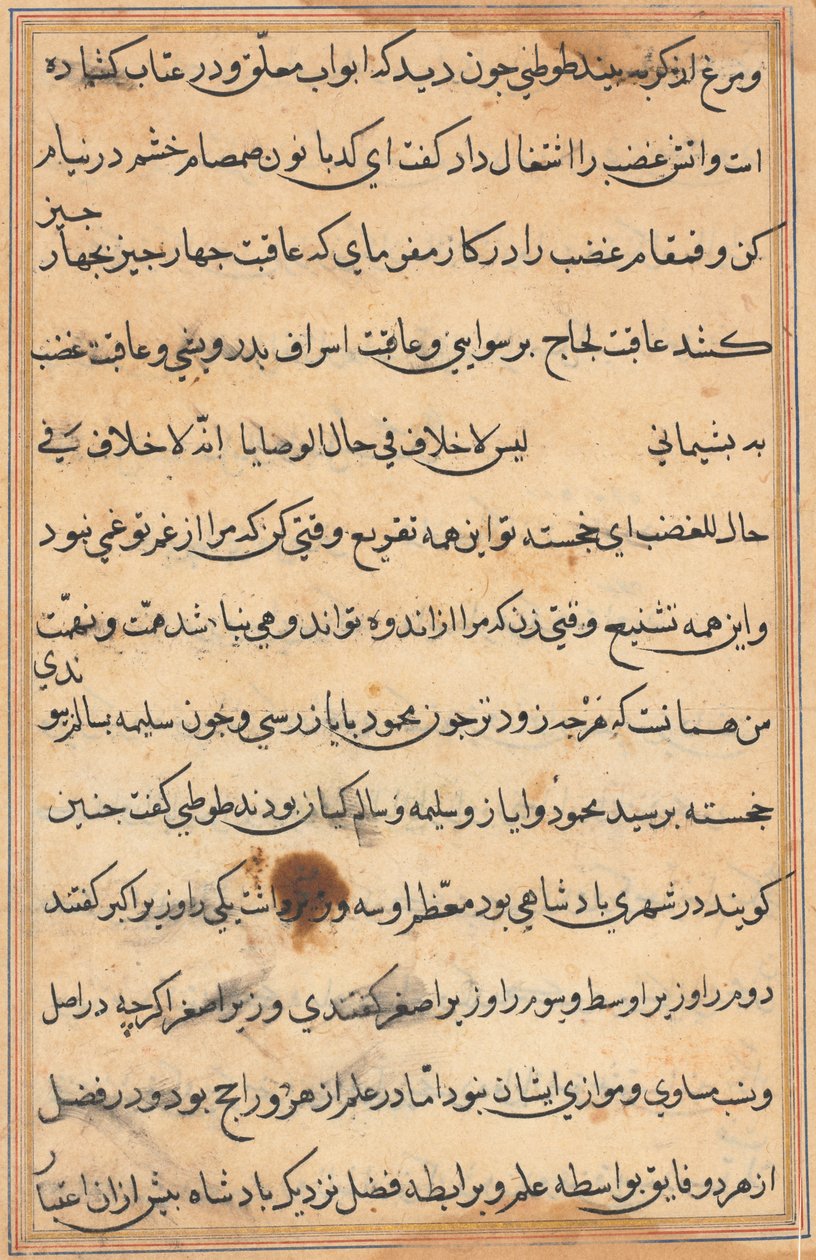 و مرغ از کربه بیند طوطی جون دید که ابواب معلّق و در عتاب کشاده
است و اتش غضب را اشتغال داد کفت ای کدبانون صمصام خشم در نیام
کن و قمقام غضب را در کار مفرمای که عاقبت جهار جیز بجهار جیز
کشد عاقبت لجاج برسوایی و عاقبت اسراف بدرویشی و عاقبت غضب
به بشیمانی لیس لاخلاف فی حال الوصایا انّه لاخلاف فی
حال للغضب ای خجسته تو این همه تقریع وقتی کن که مرا از غم تو غمی نبود
و این همه تشنیع وقتی زن که مرا از اندوه تو اندوهی نباشد همّت و نهمّت
من همانست که هرجه زودتر جون محمود بایاز رسی و جون سلیمه بسالم بیوندی
خجسته برسید محمود و ایاز و سلیمه و سالم کیان بودند طوطی کفت جنین
کویند در شهری بادشاهی بود معظّم او سه وزیر داشت یکی را وزیر اکبر کفتند
دوم را وزیر اوسط و سوم را وزیر اصغر کفتندی وزیر اصغر اکرچه در اصل
و نسب مساوی و موازی ایشان نبود امّا در علم از هر دو راجح بود و در فضل
از هر دو فایق بواسطه علم و برابطه فضل نزدیک بادشاه بیش از ان اعتبار